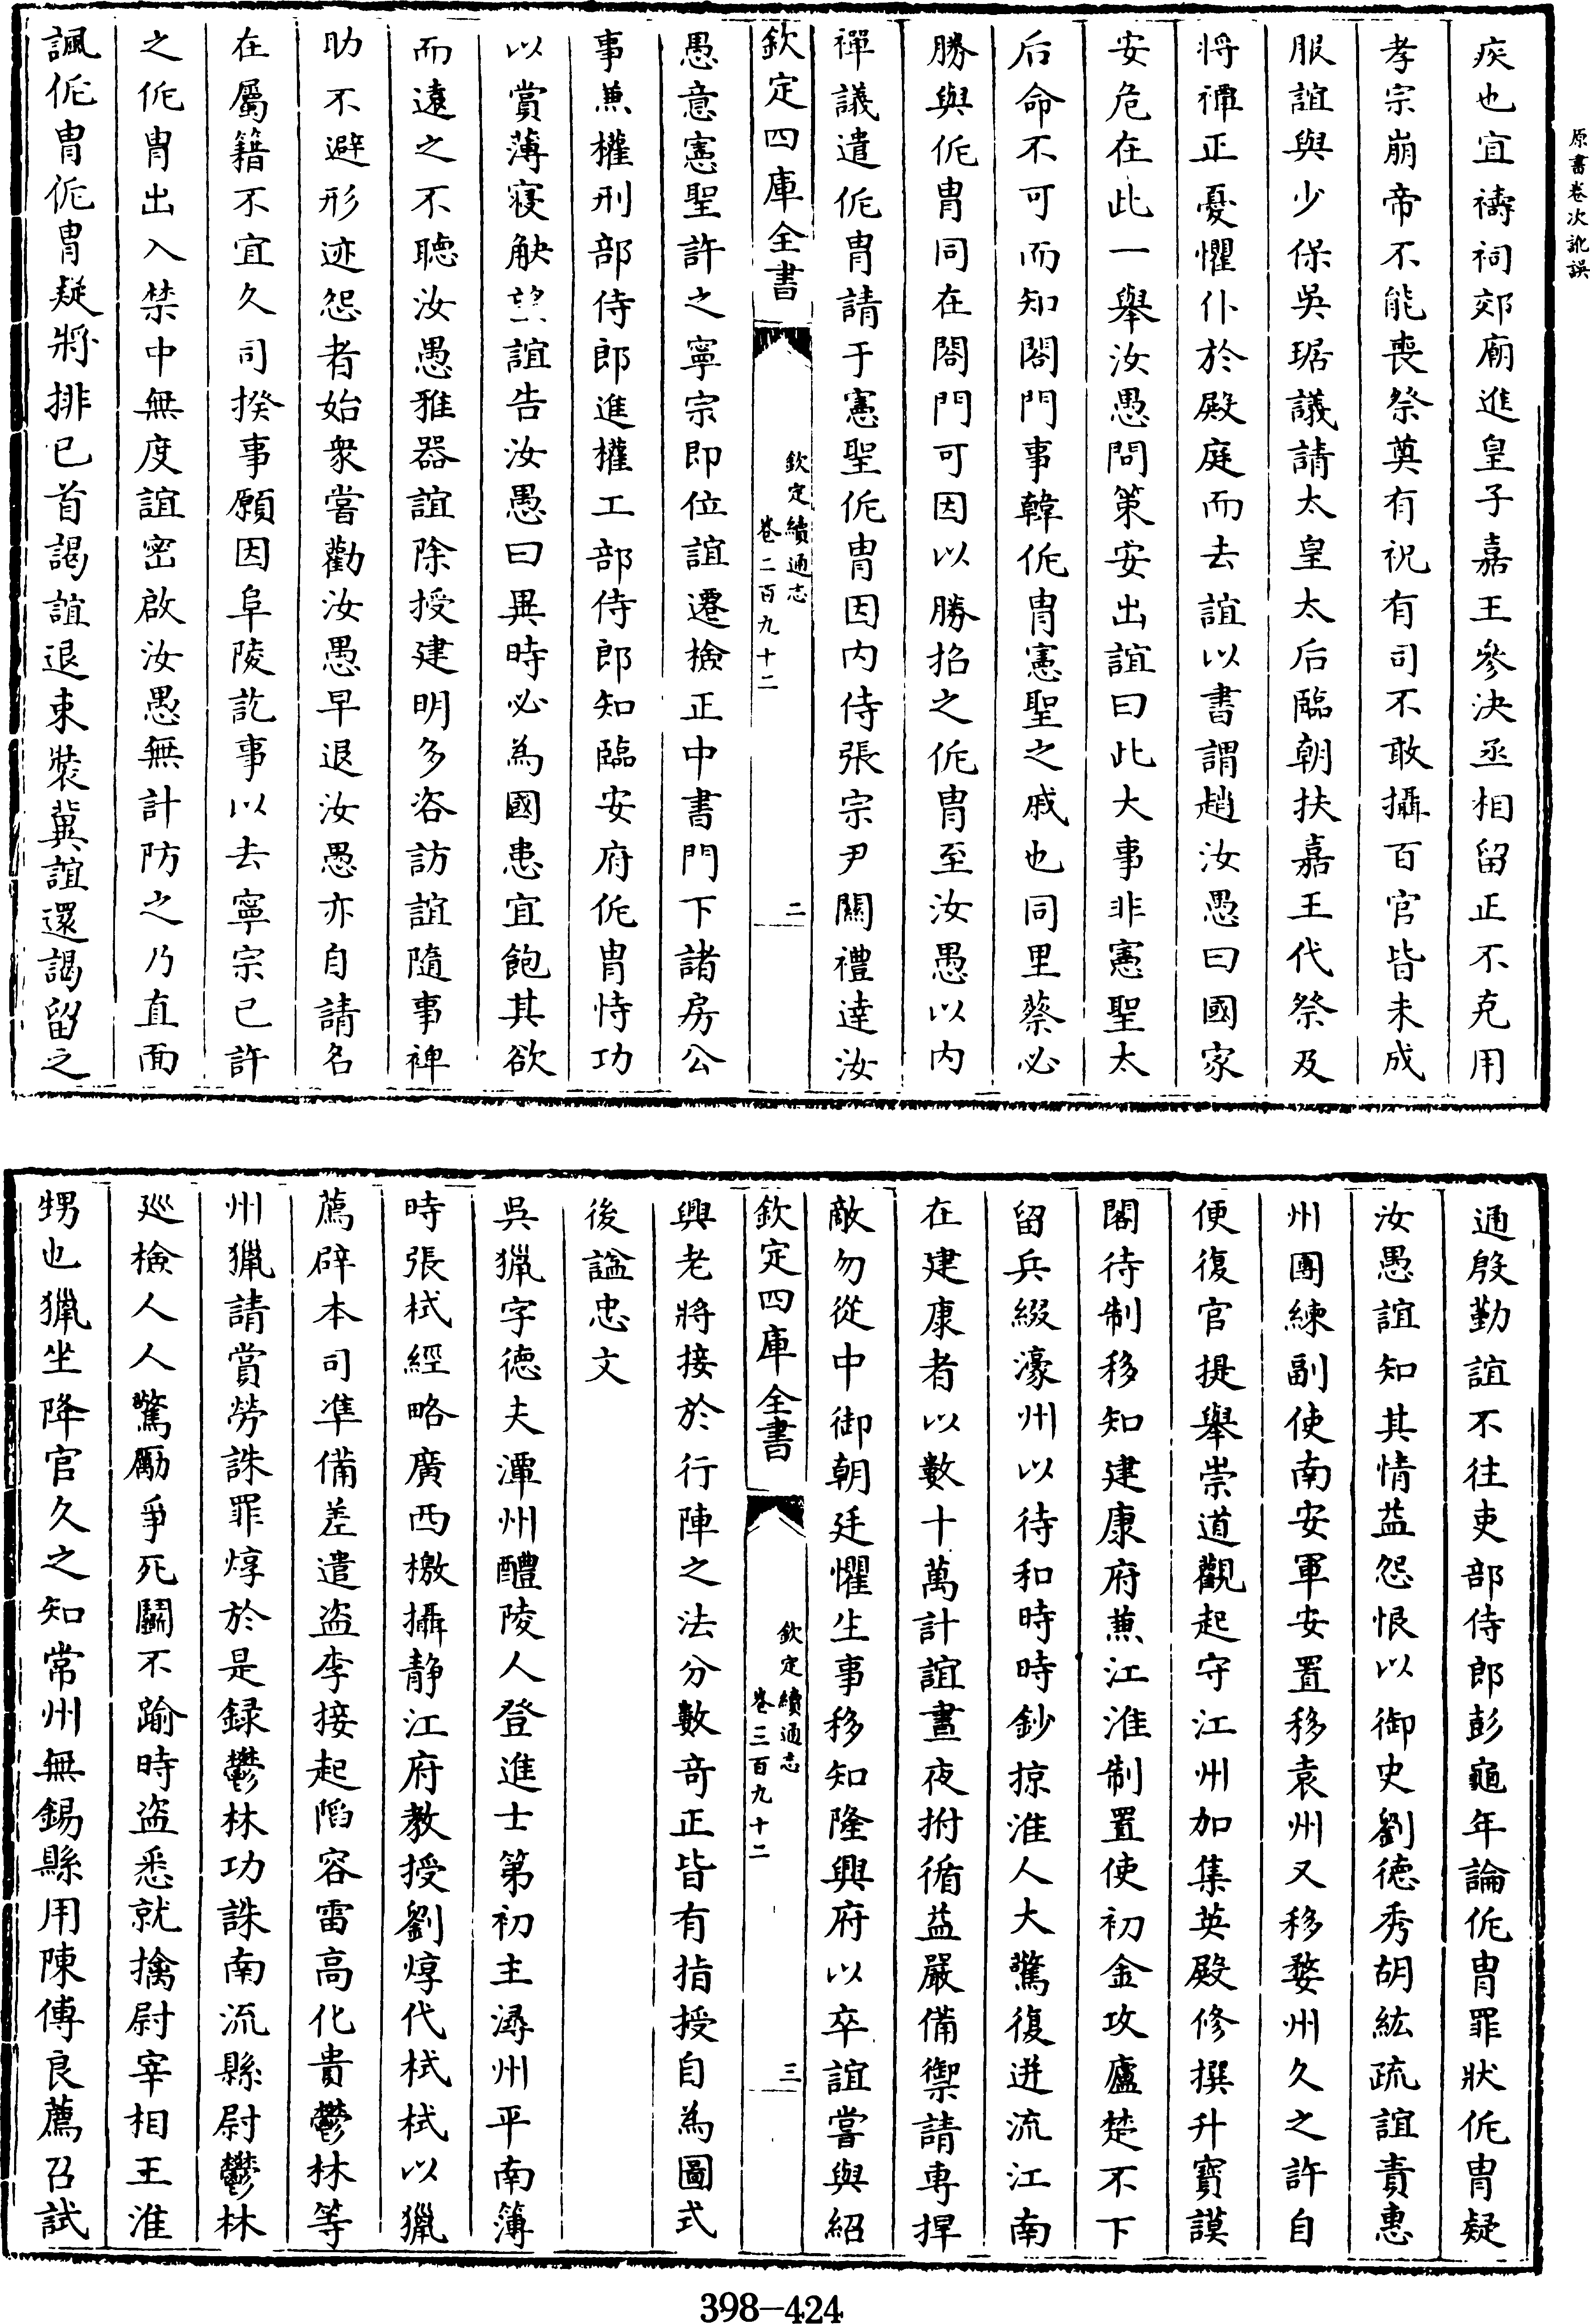 原書卷次訛誤
疾也宜禱祠郊廟進皇子嘉王參決丞相留正不克用
孝宗崩帝不能喪祭奠有祝有司不敢攝百官皆未成
服誼與少保吳琚議請太皇太后臨朝扶嘉王代祭及
將禫正憂懼仆於殿庭而去誼以書謂趙汝愚曰國家
安危在此一舉汝愚問策安出誼曰此大事非憲聖太
后命不可而知閤門事韓侂胄憲聖之戚也同里蔡必
勝與侂胄同在閤門可因以勝招之侂胄至汝愚以内
禪議遣侂胄請于憲聖侂胄因内侍張宗尹關禮達汝
欽定四庫全書
欽定續通志
卷二百九十二
二
愚意憲聖許之寧宗即位誼遷檢正中書門下諸房公
事兼權刑部侍郎進權工部侍郎知臨安府侂胄恃功
以賞薄寖觖望誼告汝愚曰異時必為國患宜飽其欲
而遠之不聽汝愚雅器誼除授建明多咨訪誼隨事裨
助不避形迹怨者始衆嘗勸汝愚早退汝愚亦自請名
在屬籍不宜久司揆事願因阜陵訖事以去寧宗已許
之侂胄出入禁中無度誼密啟汝愚無計防之乃直面
諷侂胄侂胄疑將排已首謁誼退束裝冀誼還謁留之
通殷勤誼不往吏部侍郎彭龜年論侂胄罪狀侂胄疑
汝愚誼知其情益怨恨以御史劉德秀胡紘疏誼責惠
州團練副使南安軍安置移袁州又移婺州久之許自
便復官提舉崇道觀起守江州加集英殿修撰升寶謨
閣待制移知建康府兼江淮制置使初金攻廬楚不下
留兵綴濠州以待和時時鈔掠淮人大驚復迸流江南
在建康者以數十萬計誼晝夜拊循益嚴備禦請專捍
敵勿從中御朝廷懼生事移知隆興府以卒誼嘗與紹
欽定四庫全書
欽定續通志
卷三百九十二
三
興老將接於行陣之法分數奇正皆有指授自為圖式
後諡忠文
吳獵字德夫潭州醴陵人登進士第初主潯州平南簿
時張栻經略廣西檄攝靜江府教授劉焞代栻栻以獵
薦辟本司準備差遣盜李接起陷容雷高化貴鬱林等
州獵請賞勞誅罪焞於是録鬱林功誅南流縣尉鬱林
廵檢人人驚勵爭死鬭不踰時盜悉就擒尉宰相王淮
甥也獵坐降官久之知常州無錫縣用陳傅良薦召試
398—424